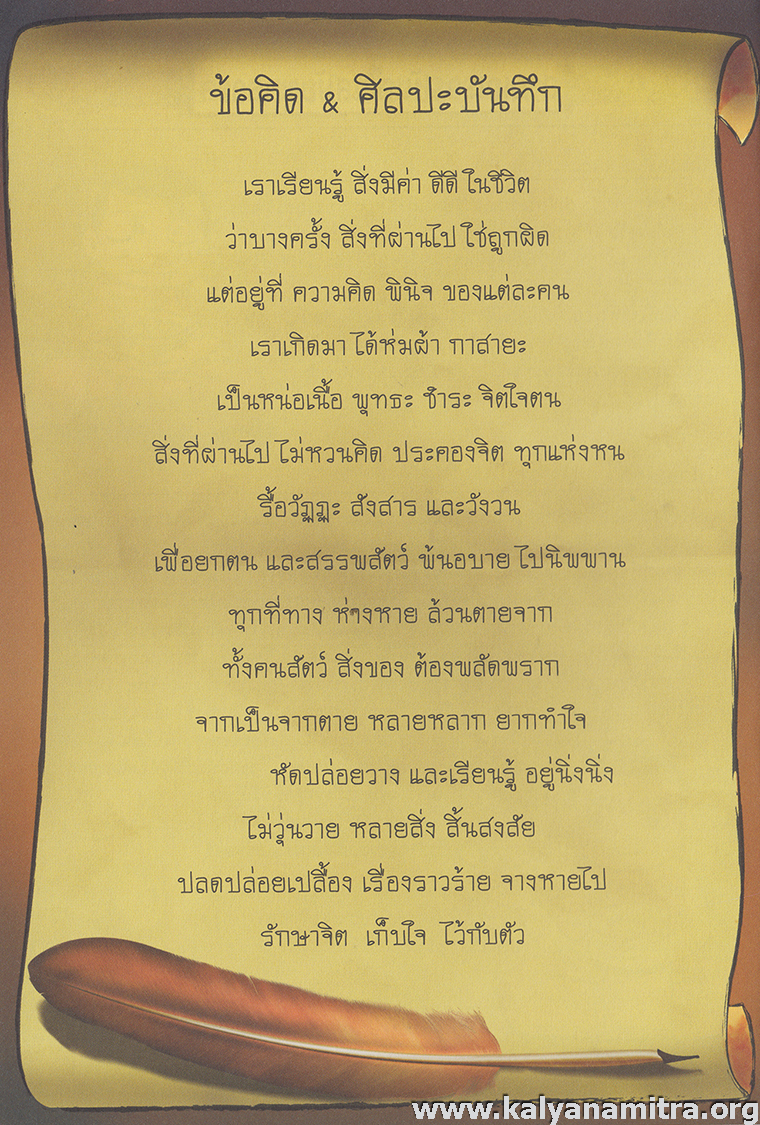 ข้อคิด & ศิลปะบันทึก
เราเรียนรู้ สิ่งมีค่า ดีดี ในชีวิต
ว่าบางครั้ง สิ่งที่ผ่านไป ใช่ถูกผิด
แต่อยู่ที่ ความคิด พินิจ ของแต่ละคน
เราเกิดมา ได้ห่มผ้า กาสายะ
เป็นหน่อเนื้อ พุทธะ ชำระ จิตใจตน
สิ่งที่ผ่านไป ไม่หวนคิด ประคองจิต ทุกแห่งหน
รื้อวัฏฏะ สังสาร และวังวน
เพื่อยกตน และสรรพสัตว์ พ้นอบาย ไปนิพพาน
ทุกที่ทาง ห่างหาย ล้วนตายจาก
ทั้งคนสัตว์ สิ่งของ ต้องพลัดพราก
จากเป็นจากตาย หลายหลาก ยากทำใจ
หัดปล่อยวาง และเรียนรู้ อยู่นิ่งนิ่ง
ไม่วุ่นวาย หลายสิ่ง สิ้นสงสัย
ปลดปล่อยเปลื้อง เรื่องราวร้าย จางหายไป
รักษาจิต เก็บใจ ไว้กับตัว
www.kalyanamitra.org